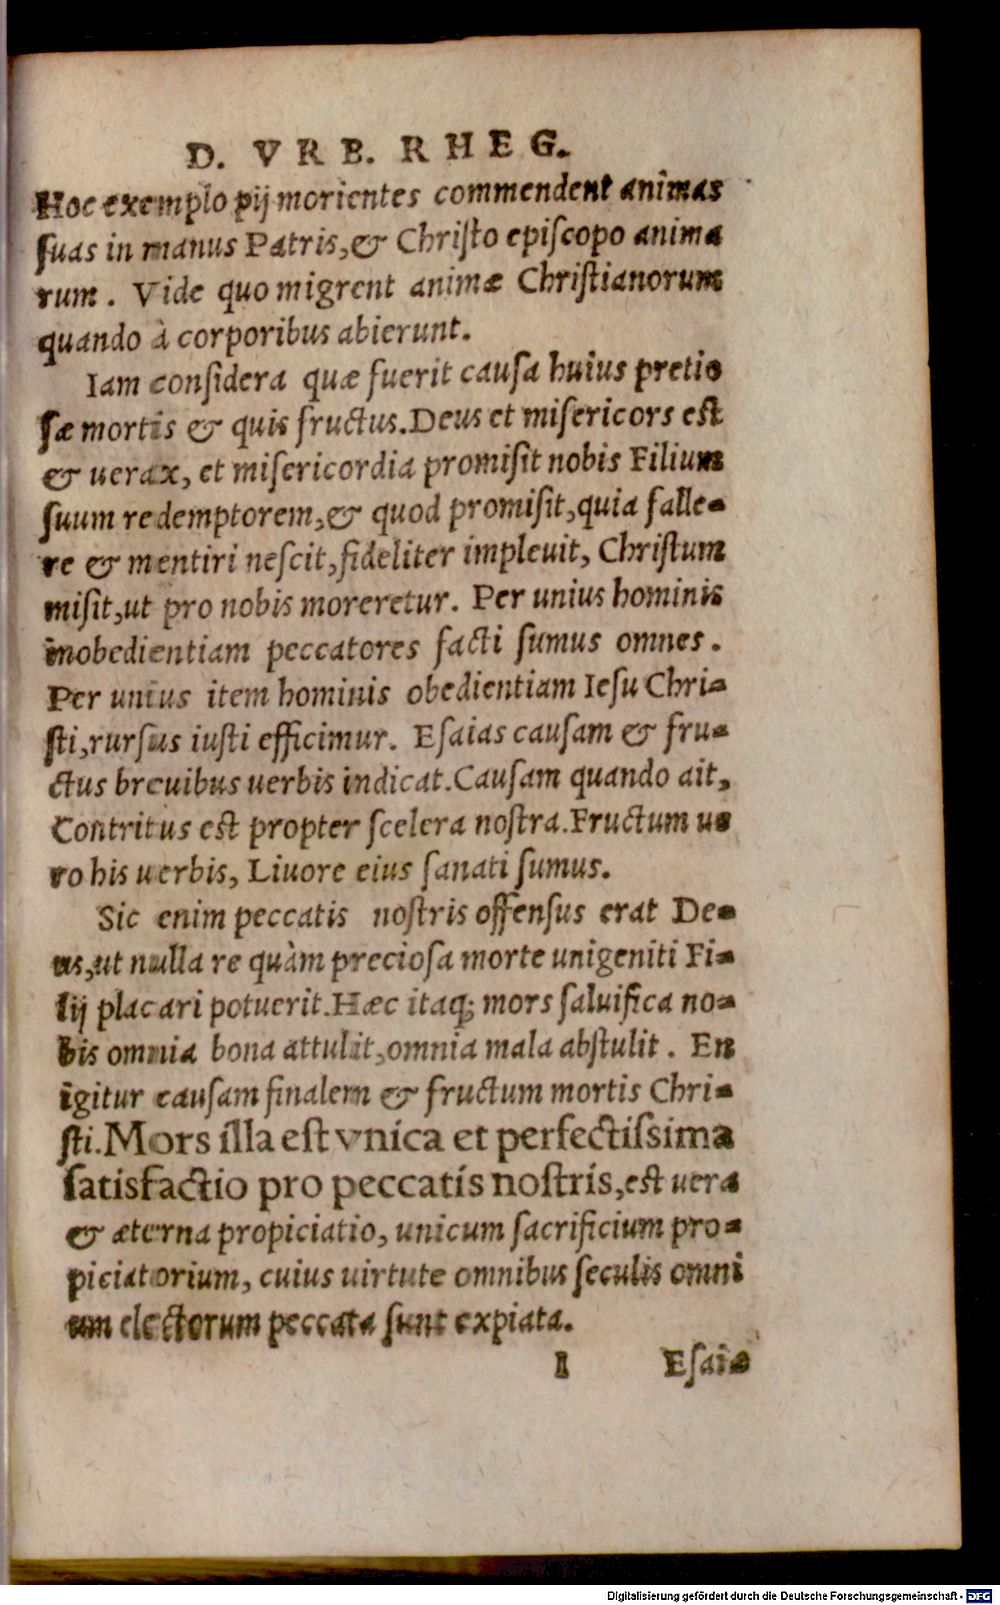 D. VRB. RHEG.
Hoc exemplo pij morientes commendent animas
ſuas in manus Patris,& Chriſto epiſcopo anima
rum. Vide quo migrent animæ Chriſtianorum
quando à corporibus abierunt.
Iam conſidera quæ fuerit cauſa huius pretio
ſæ mortis & quis fructus.Deus et miſericors eſt
& uerax, et miſericordia promiſit nobis Filium
ſuum redemptorem,& quod promiſit,quia falle-
re & mentiri neſcit,fideliter impleuit, Chriſtum
miſit,ut pro nobis moreretur. Per unius hominis
inobedientiam peccatores facti ſumus omnes.
Per unius item hominis obedientiam Ieſu Chri-
ſti,rurſus iuſti efficimur. Eſaias cauſam & fru-
ctus breuibus uerbis indicat.Cauſam quando ait,
Contritus eſt propter ſcelera noſtra.Fructum ue
ro his uerbis, Liuore eius ſanati ſumus.
Sic enim peccatis noſtris offenſus erat De-
us,ut nulla re quàm precioſa morte unigeniti Fi-
lij placari potuerit.Hæc itaq; mors ſaluifica no-
bis omnia bona attulit,omnia mala abſtulit. En
igitur cauſam finalem & fructum mortis Chri-
ſti.Mors illa eſt vnica et perfectiſsima
ſatisfactio pro peccatis noſtris,eſt uera
& æterna propiciatio, unicum ſacrificium pro-
piciatorium, cuius uirtute omnibus ſeculis omni
um electorum peccata ſunt expiata.
I Eſaiæ
Digitalisierung gefördert durch die Deutsche Forschungsgemeinschaft - DFG